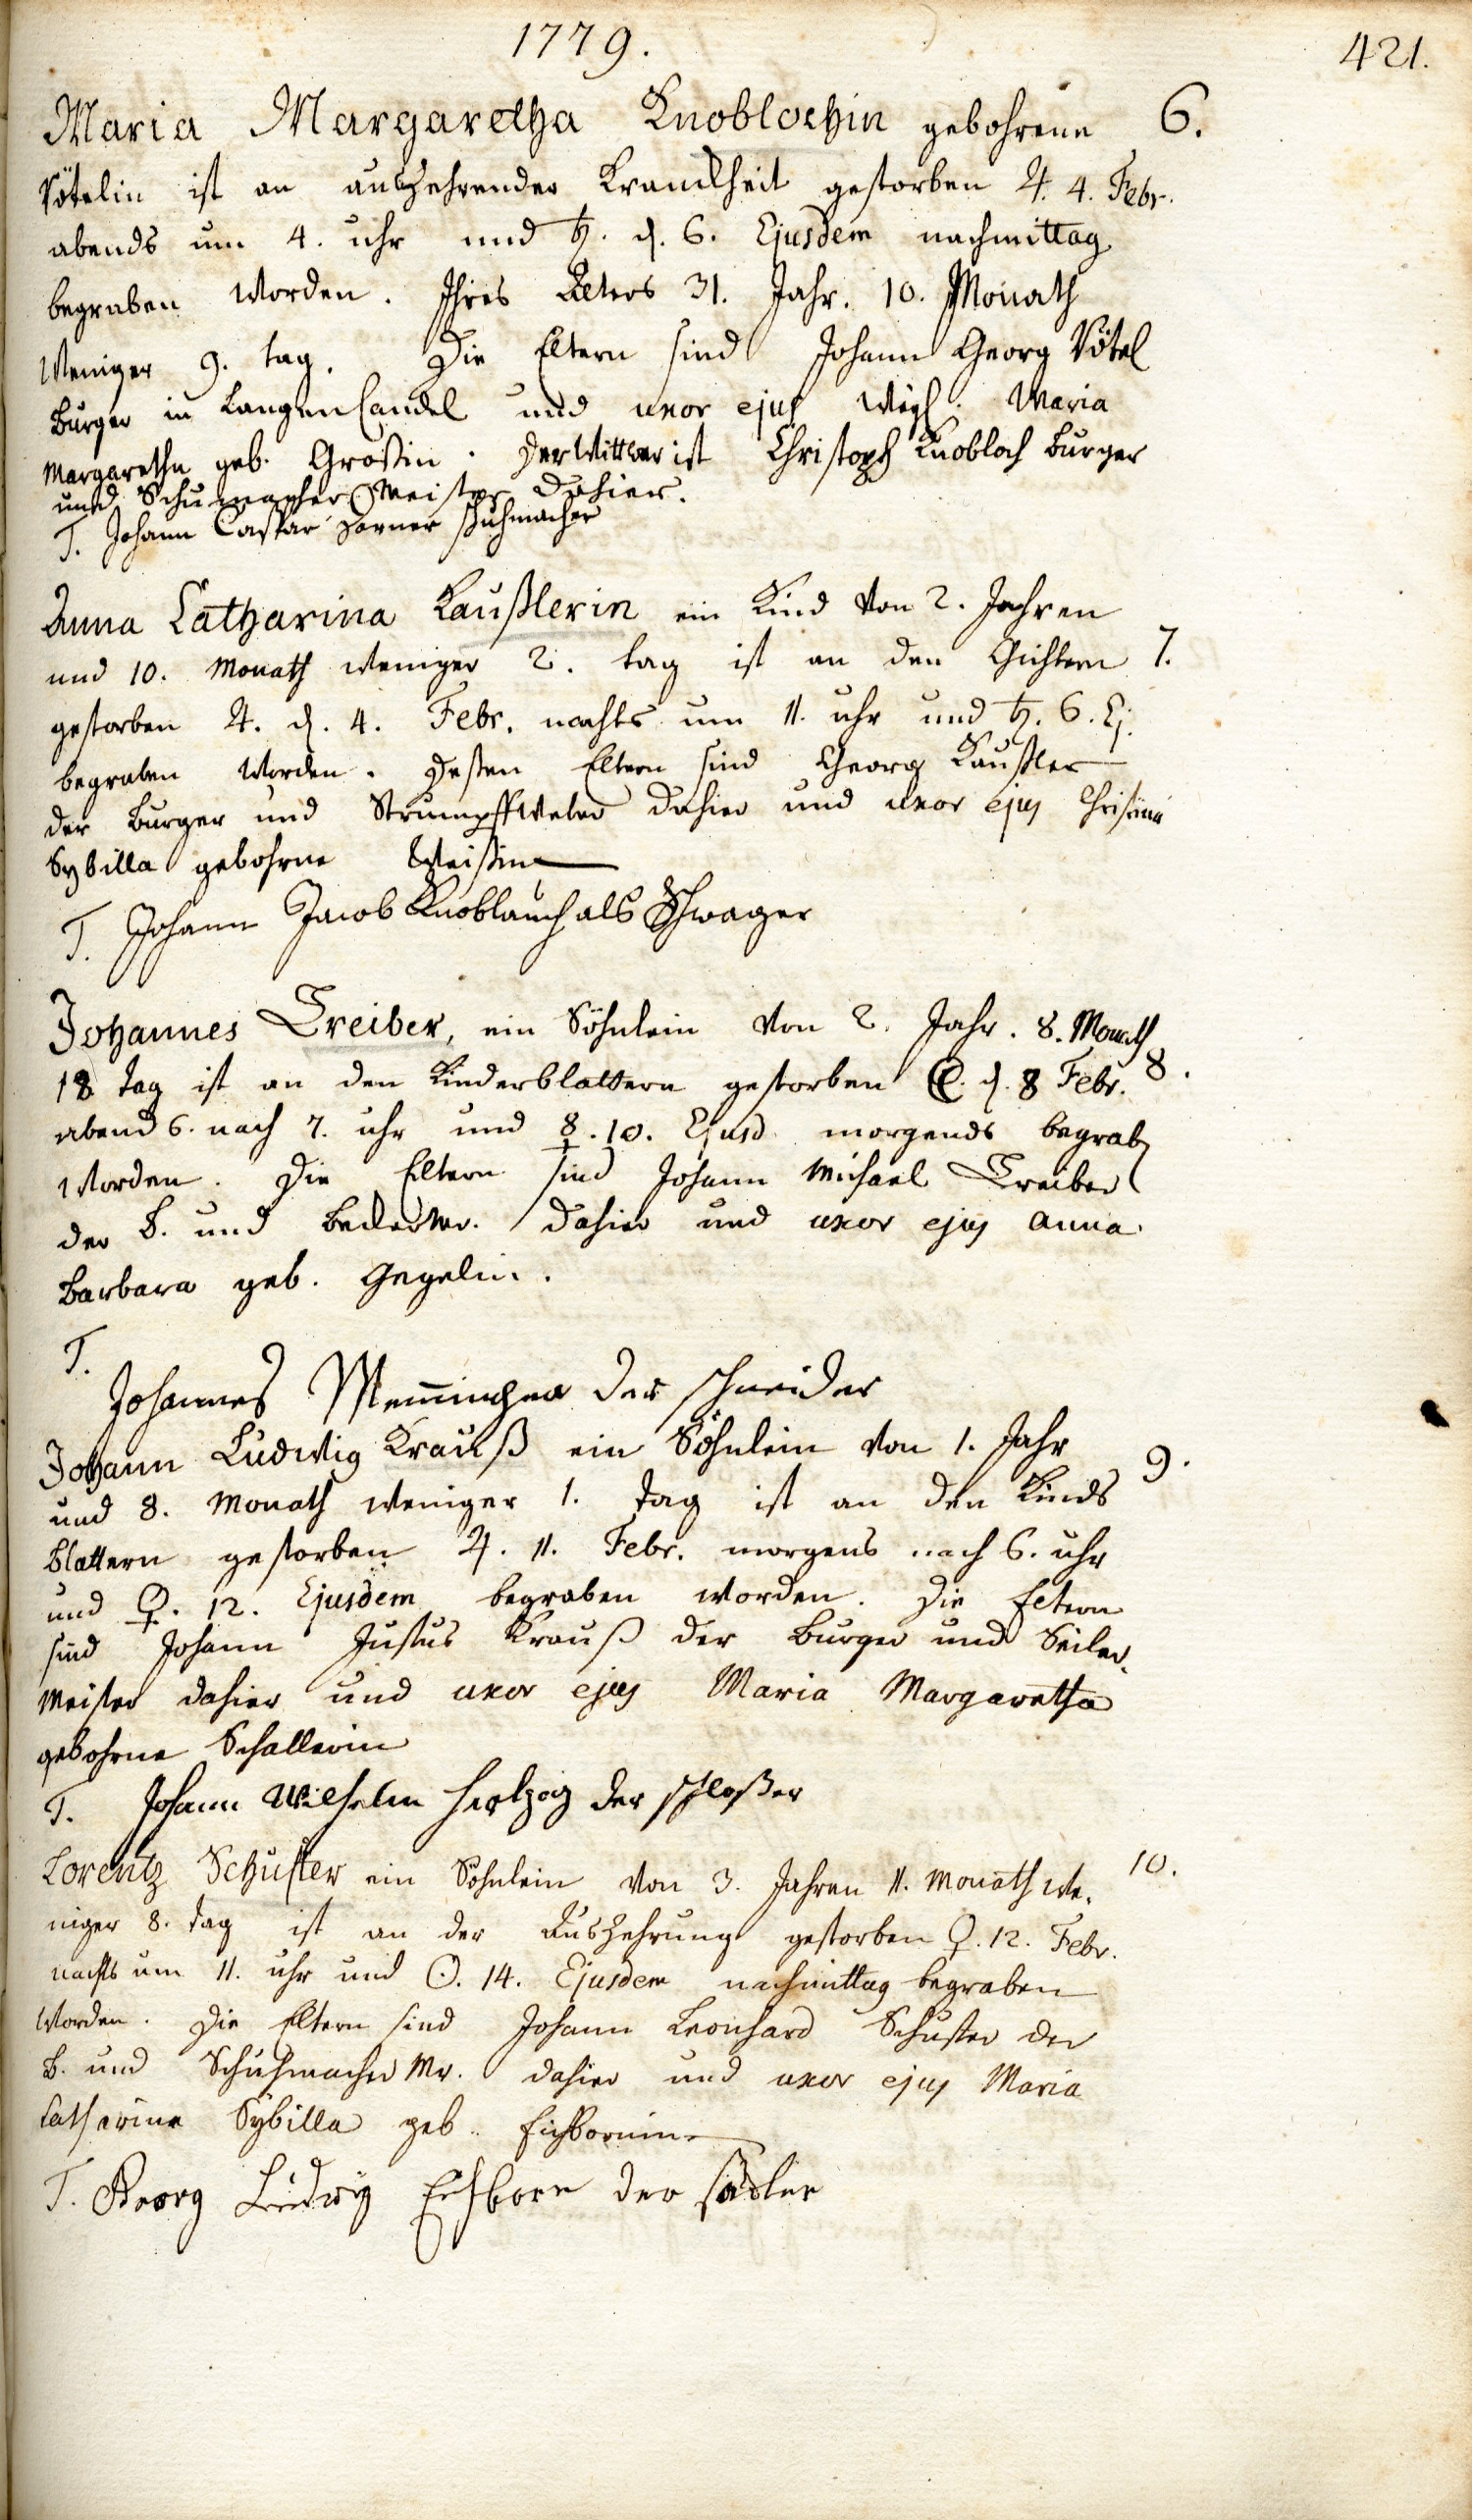 1779.
421.
Maria Margaretha Knoblochin gebohrene 6.
Vötelin ist an auszehrender Kranckheit gestorben ♃. 4. Febr.
abends um 4. uhr und ♄. d. 6. Ejusdem nachmittag
begraben worden. Ihres Alters 31. Jahr. 10. Monath
weniger 9. tag. Die Eltern sind Johann Georg Vötel
Burger in Langen Candel und uxor ejus Maria
Margaretha geb. Großin. Der Wittwer ist Christoph Knobloch Burger
und Schumacher Meister dahier.
T. Johann Caspar Dorner schuhmacher
Anna Catharina Kaußlerin ein Kind von 2. Jahren
und 10. Monath weniger 2. tag ist an den Gichtern 7.
gestorben ♃. d. 4. Febr. nachts um 11. uhr und ♄. 6. Ej.
begraben worden. Deßen Eltern sind Georg Kaußler
der Burger und Strumpffweber dahier und uxor ejus Christina
Sybilla gebohrne Weißin
T. Johann Jacob Knoblauch als Schwager
Johannes Treiber, ein Söhnlein von 2. Jahr. 8. Monath
18 tag ist an den Kinderblattern gestorben ☾. d. 8 Febr. 8.
abends. nach 7. uhr und ☿. 10. Ejusd. morgends begrab
worden. Die Eltern sind Johann Michael Treiber
der B. und Beckermr. dahier und uxor ejus Anna
Barbara geb. Gegelin.
T.
Johannes Memminger der schneider
Johann Ludwig Krauß ein Söhnlein von 1. Jahr 9.
und 8. Monath weniger 1. tag ist an den Kinds
blattern gestorben ♃. 11. Febr. morgens nach 6. uhr
und ♀. 12. Ejusdem begraben worden. Die Eltern
sind Johann Justus Krauß der Burger und Seiler
Meister dahier und uxor ejus Maria Margaretha
gebohrne Schallerin
T. Johann Wilhelm Hertzog der schloßer
Lorentz Schuster ein Söhnlein von 3. Jahren 11. Monath we- 10.
niger 8. tag ist an der Auszehrung gestorben ♀. 12. Febr.
nachts um 11. uhr und ☉. 14. Ejusdem nachmittag begraben
worden. Die Eltern sind Johann Leonhard Schuster der
B. und Schuhmacher Mr. dahier und uxor ejus Maria
Catharina Sybilla geb. Eichbornin
T. Georg Ludwig Eichborn der säcler